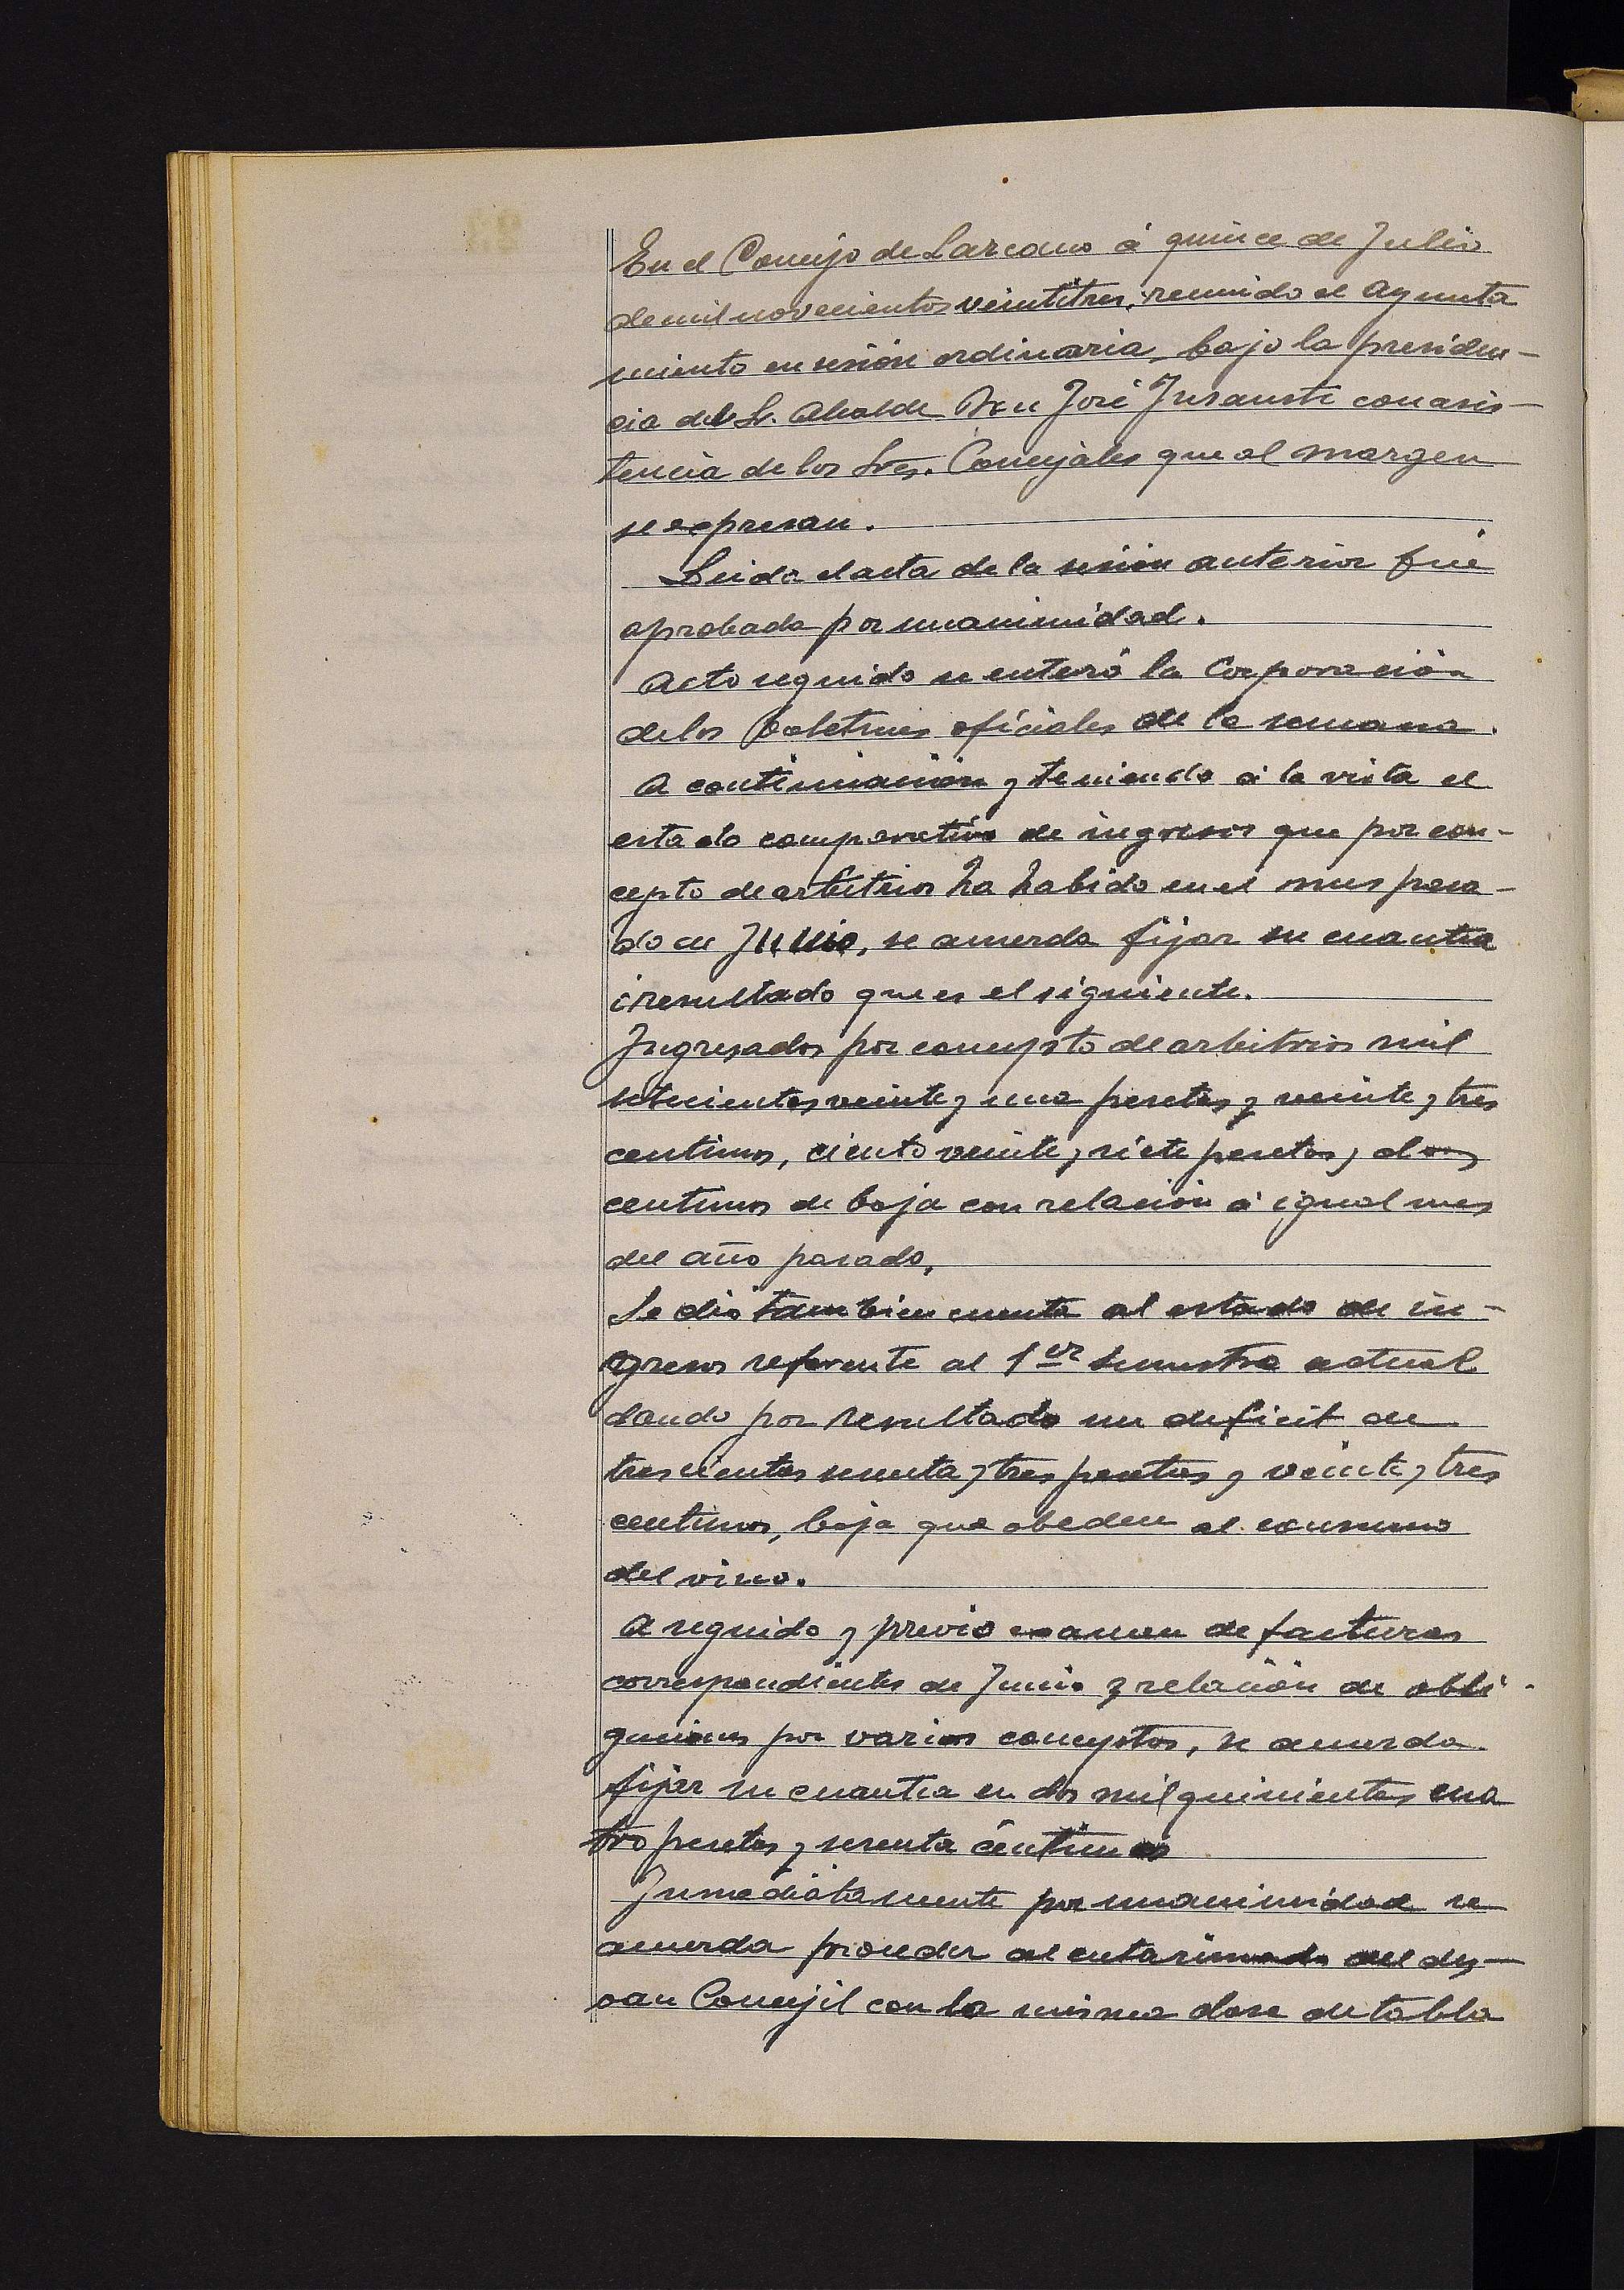 En el Concejo de Lazcano á quince de Julio
de mil novecientos veintitres, reunido el Ayunta
miento en sesión ordinaria, bajo la presiden-
cia del Sr. Alcalde Don José Insausti con asis-
tencia de los Sres. Concejales que al margen
se expresan.
Leida el acta de la sesión anterior fué
aprobada por unanimidad.
Acto seguido se enteró la Corporación
de los Boletines oficiales de la semana.
A continuación y teniendo á la vista el
estado comparativo de ingresos que por con-
cepto de arbitrios ha habido en el mes pasa-
do de Junio, se acuerda fijar su cuantia
i resultado que es el siguiente.
Ingresados por concepto de arbitrios mil
setecientas veinte y una pesetas y veinte y tres
centimos, ciento veinte y siete pesetas y dos
centimos de baja con relación á igual mes
del año pasado,
Se dio tambien cuenta al estado de in-
gresos referente al 1er semestre actual
dando por resultado un deficit de
trescientas y tres pesetas y veinte y tres
centimos, baja que obedece al consumo
del vino.
A seguido y previo examen de facturas
correspondientes de Junio y relación de obli-
gaciones por varios conceptos, se acuerda
fijar su cuantia en dos mil quinientas cua
tro pesetas y sesenta céntimos
Inmediatamente por unanimidad se
acuerda proceder al entarimado del des-
van Concejil con la misma clase de tabla